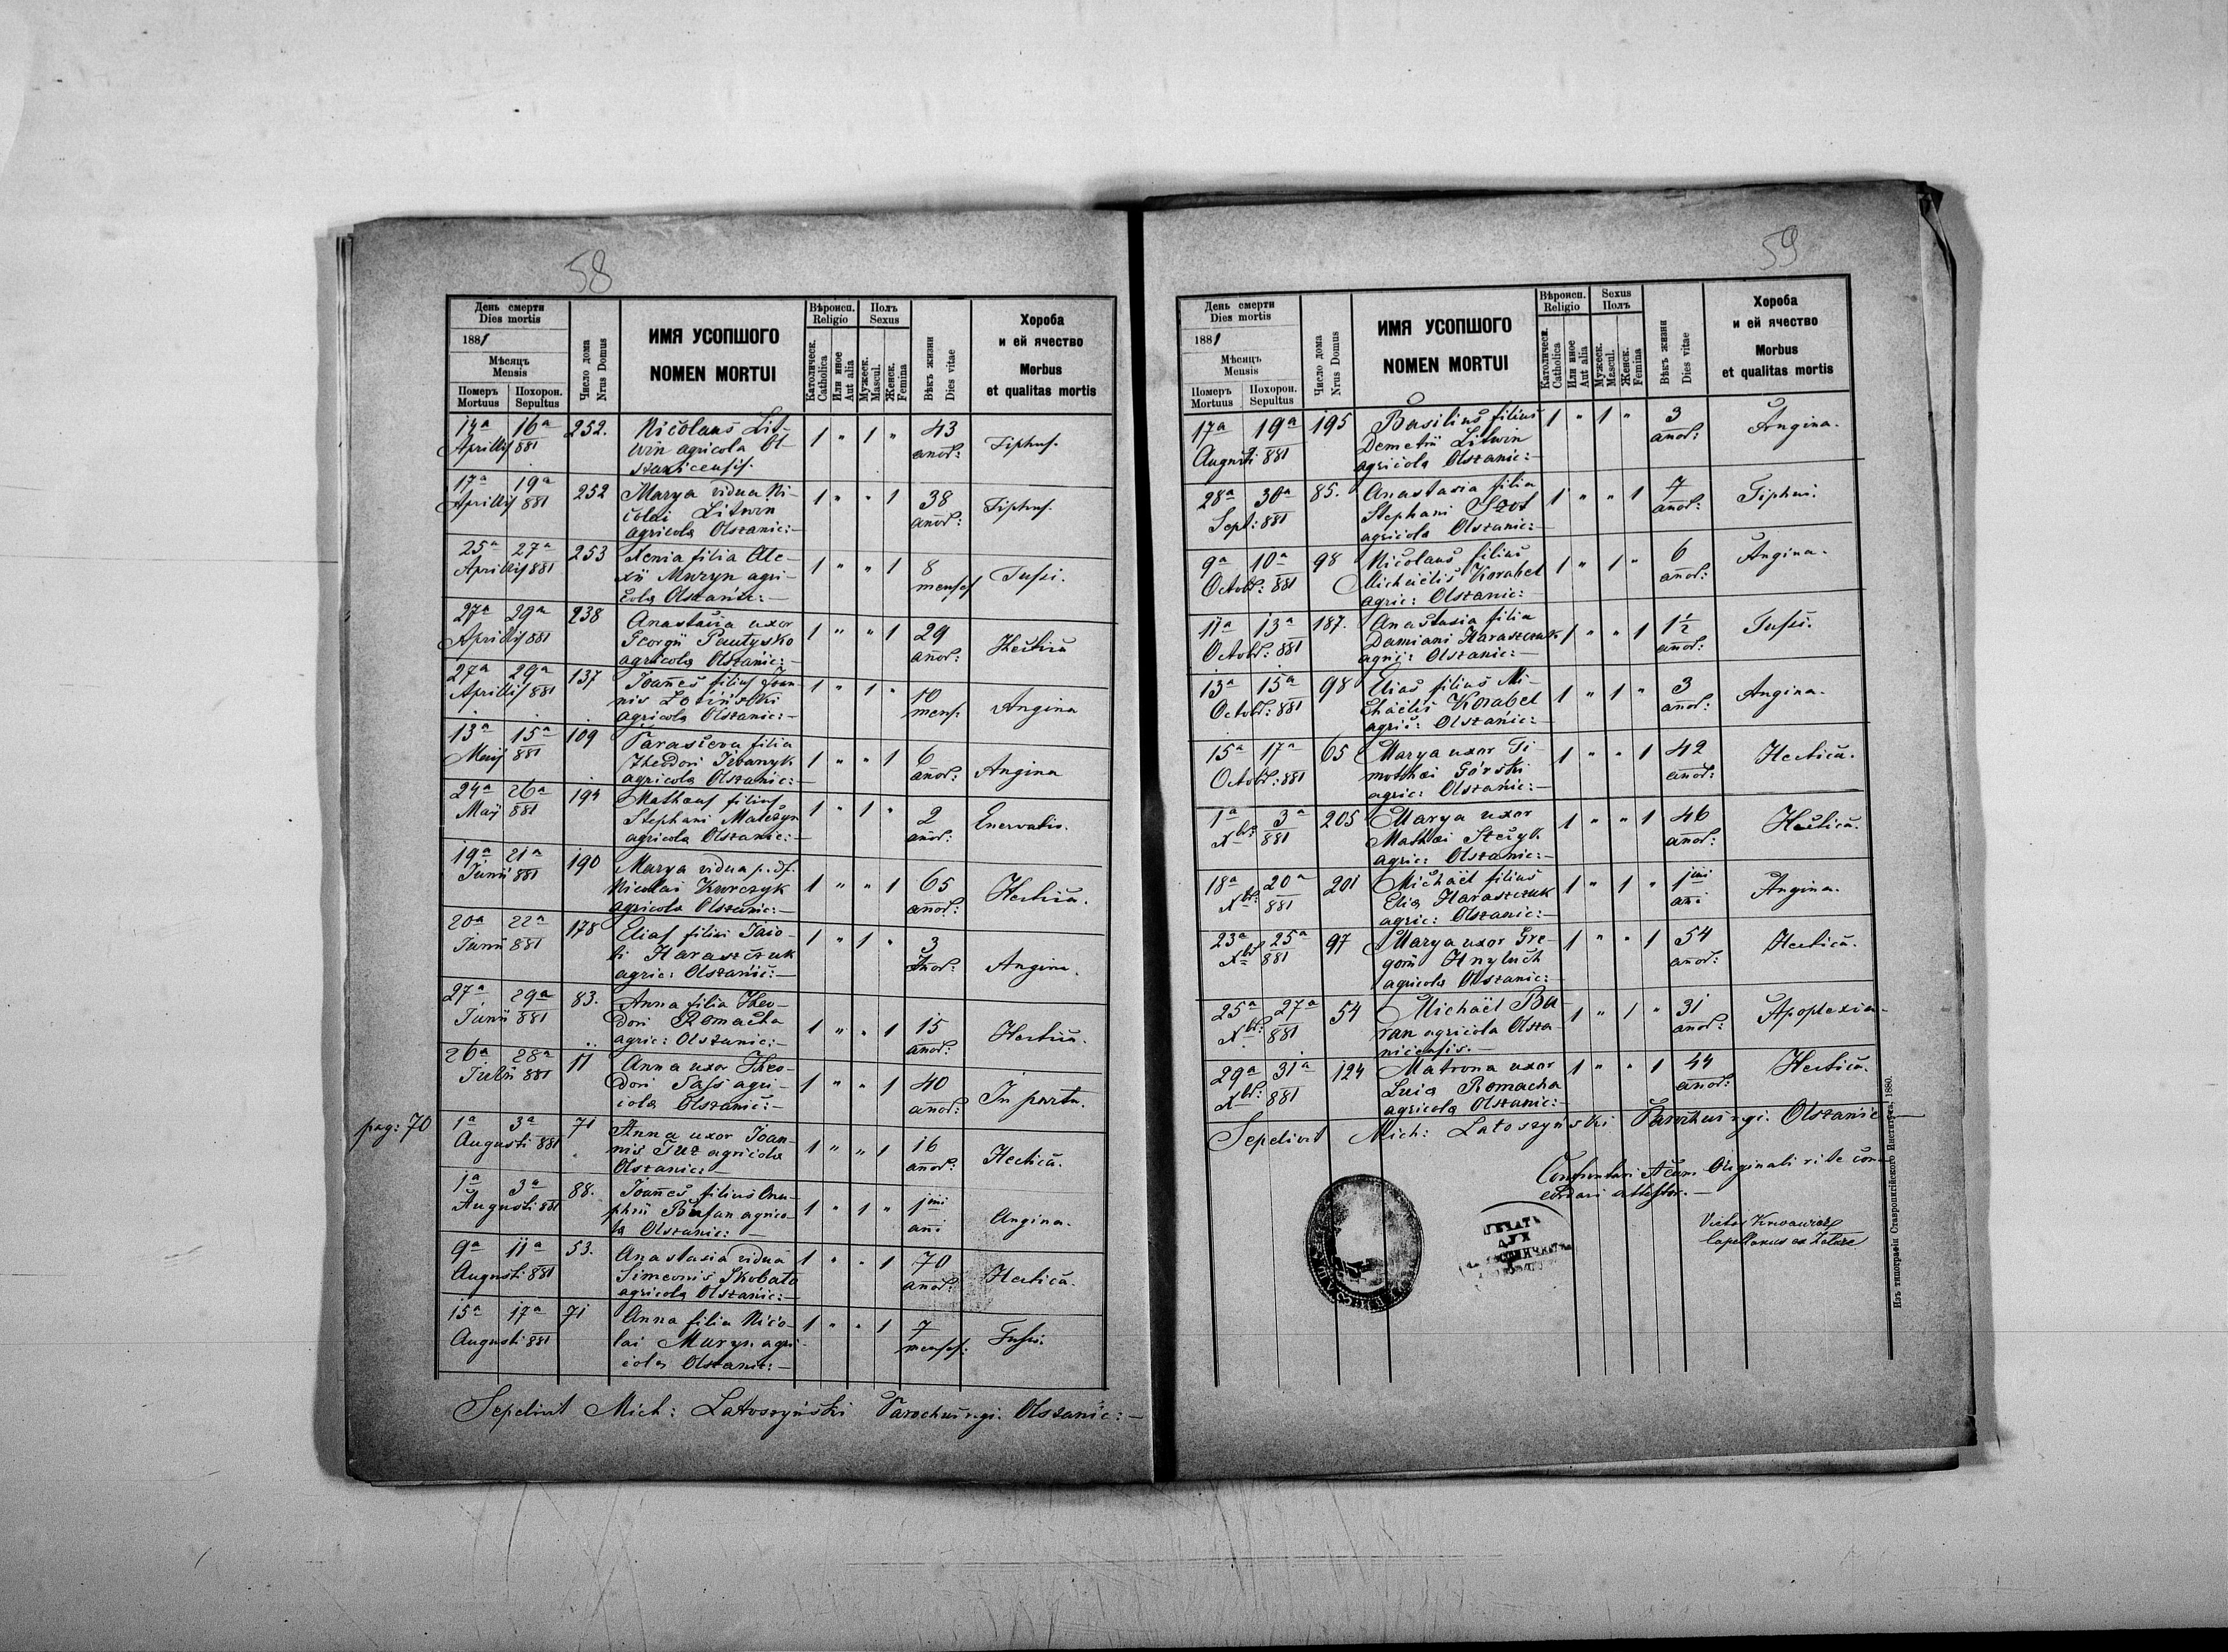 58
День смерти
Dies mortis
1881
Мѣсяць
Mensis
Померъ
Mortuus
Похорон.
Sepultus
Число дома
Nrus Domus
ИМЯ УСОПШОГО
NOMEN MORTUI
Вѣроисп.
Religio
Католическ.
Catholica
Или иное
Aut alia
Полъ
Sexus
Мужеск.
Mascul.
Женск.
Femina
Вѣкъ жизни
Dies vitae
Хороба
и ей ячество
Morbus
et qualitas mortis
14a 16a 252. Nicolaus Lit- 1 " 1 " 43 Tiphus.
Aprillis 881 win agricola Ol- anor:
szanicensis.
17a 19a 252 Marya vidua Ni- 1 " " 1 38 Tiphus.
Aprillis 881 colai Litwin anor:
agricola Olszanic:-
25a 27a 253 Xenia filia Ale- 1 " " 1 8 Tussi.
Aprillis 881 xii Muryn agri- menses
cola Olszanic:-
27a 29a 238 Anastasia uxor 1 " " 1 29 Hectica
Aprillis 881 Georgii Pautysko anor:
agricola Olszanic:-
27a 29a 137 Joannes filius Joan- 1 " 1 " 10 Angina
Aprillis 881 nis Łotiński mens:
agricola Olszanic:-
13a 15a 109 Parasceva filia 1 " " 1 6 Angina
Maij 881 Theodori anor:
agricola Olszanic:-
24a 26a 194 Matheus filius 1 " 1 " 2 Enervatio.
Maij 881 Stephani Matczyn anor:
agricola Olszanic:-
19a 21a 190 Marya vidua p. df. 1 " " 1 65 Hectica.
Junii 881 Nicolai Kurczyk anor:
agricola Olszanic:-
20a 22a 178 Elias filius Jaco- 1 " 1 " 3 Angina.
Junii 881 bi Haraszczuk anor:
agric: Olszanic:-
27a 29a 83. Anna filia Theo- 1 " " 1 15 Hectica.
Junii 881 dori Romacha anor:
agric: Olszanic:-
26a 28a 11 Anna uxor Theo- 1 " " 1 40 In partu.
Julii 881 dori Sass agri- anor:
cola Olszanic:-
pag: 70 1a 3a 71 Anna uxor Joan- 1 " " 1 16 Hectica.
Augusti 881 nis Tuz agricola anor:
Olszanic:
1a 3a 88. Joannes filius Onu- 1 " 1 " 1mi Angina.
Augusti 881 phrii Busan agrico- ani
la Olszanic: -
9a 11a 53. Anastasia vidua 1 " " 1 70 Hectica.
Augusti 881 Simeonis Skobata anor:
agricola Olszanic:-
15a 17a 71 Anna filia Nico- 1 " " 1 7 Tussi.
Augusti 881 lai Muryn agri- menses:
cola Olszanic:-
Sepelivit Mich: Latoszyński Parochus r.gi. Olszanic:-
59
День смерти
Dies mortis
1881
Мѣсяць
Mensis
Померъ
Mortuus
Похорон.
Sepultus
Число дома
Nrus Domus
ИМЯ УСОПШОГО
NOMEN MORTUI
Вѣроисп.
Religio
Католическ.
Catholica
Или иное
Aut alia
Sexus
Полъ
Мужеск.
Mascul.
Женск.
Femina
Вѣкъ жизни
Dies vitae
Хороба
и ей ячество
Morbus
et qualitas mortis
17a 19a 195 Basilius filius 1 " 1 " 3 Angina.
Augusti 881 Demetrii Litwin anor:
agricola Olszanic:
28a 30a 85. Anastasia filia 1 " " 1 7 Tiphus.
Sept: 881 Stephani Szot anor:
agricola Olszanic:-
9a 10a 98 Nicolaus filius 1 " 1 " 6 Angina.
Octobr: 881 Michaelis Korabel anor:
agric: Olszanic:
11a 13a 187. Anastasia filia 1 " " 1 1½ Tussi.
Octobr: 881 Damiani Haraszczuk anor:
agric: Olszanic:-
13a 15a 98 Elias filius Mi- 1 " 1 " 3 Angina.
Octobr: 881 chaelis Korabel anor:
agric: Olszanic:-
15a 17a 65 Marya uxor Ti- 1 " " 1 42 Hectica.
Octobr: 881 mothei Górski anor:
agric: Olszanic:-
1a 3a 205 Marya uxor 1 " " 1 46 Hectica.
Xbr: 881 Mathei anor:
agric: Olszanic:-
18a 20a 201 Michael filius 1 " 1 " 1mi Angina.
Xbr: 881 Elia Haraszczuk ani
agric: Olszanic:-
23a 25a 97 Marya uxor Gre- 1 " " 1 54 Hectica.
Xbr 881 gorii Hnyluch anor:
agricola Olszanic:-
25a 27a 54 Michael Ba- 1 " 1 " 31 Apoplexia.
Xbr: 881 ran agricola Olsza- anor:
nicensis.-
29a 31a 124 Matrona uxor 1 " " 1 44 Hectica.
Xbr: 881 Luca Romacha anor:
agricola Olszanic:-
Sepelivit Mich: Latoszyński Parochus r.gi. Olszanic-
Originali rite con-
cordari attestor.-
Capellanus
ПЕЧАТЬ
ДУХ
Изъ типографіи Ставропигійского Института, 1880.